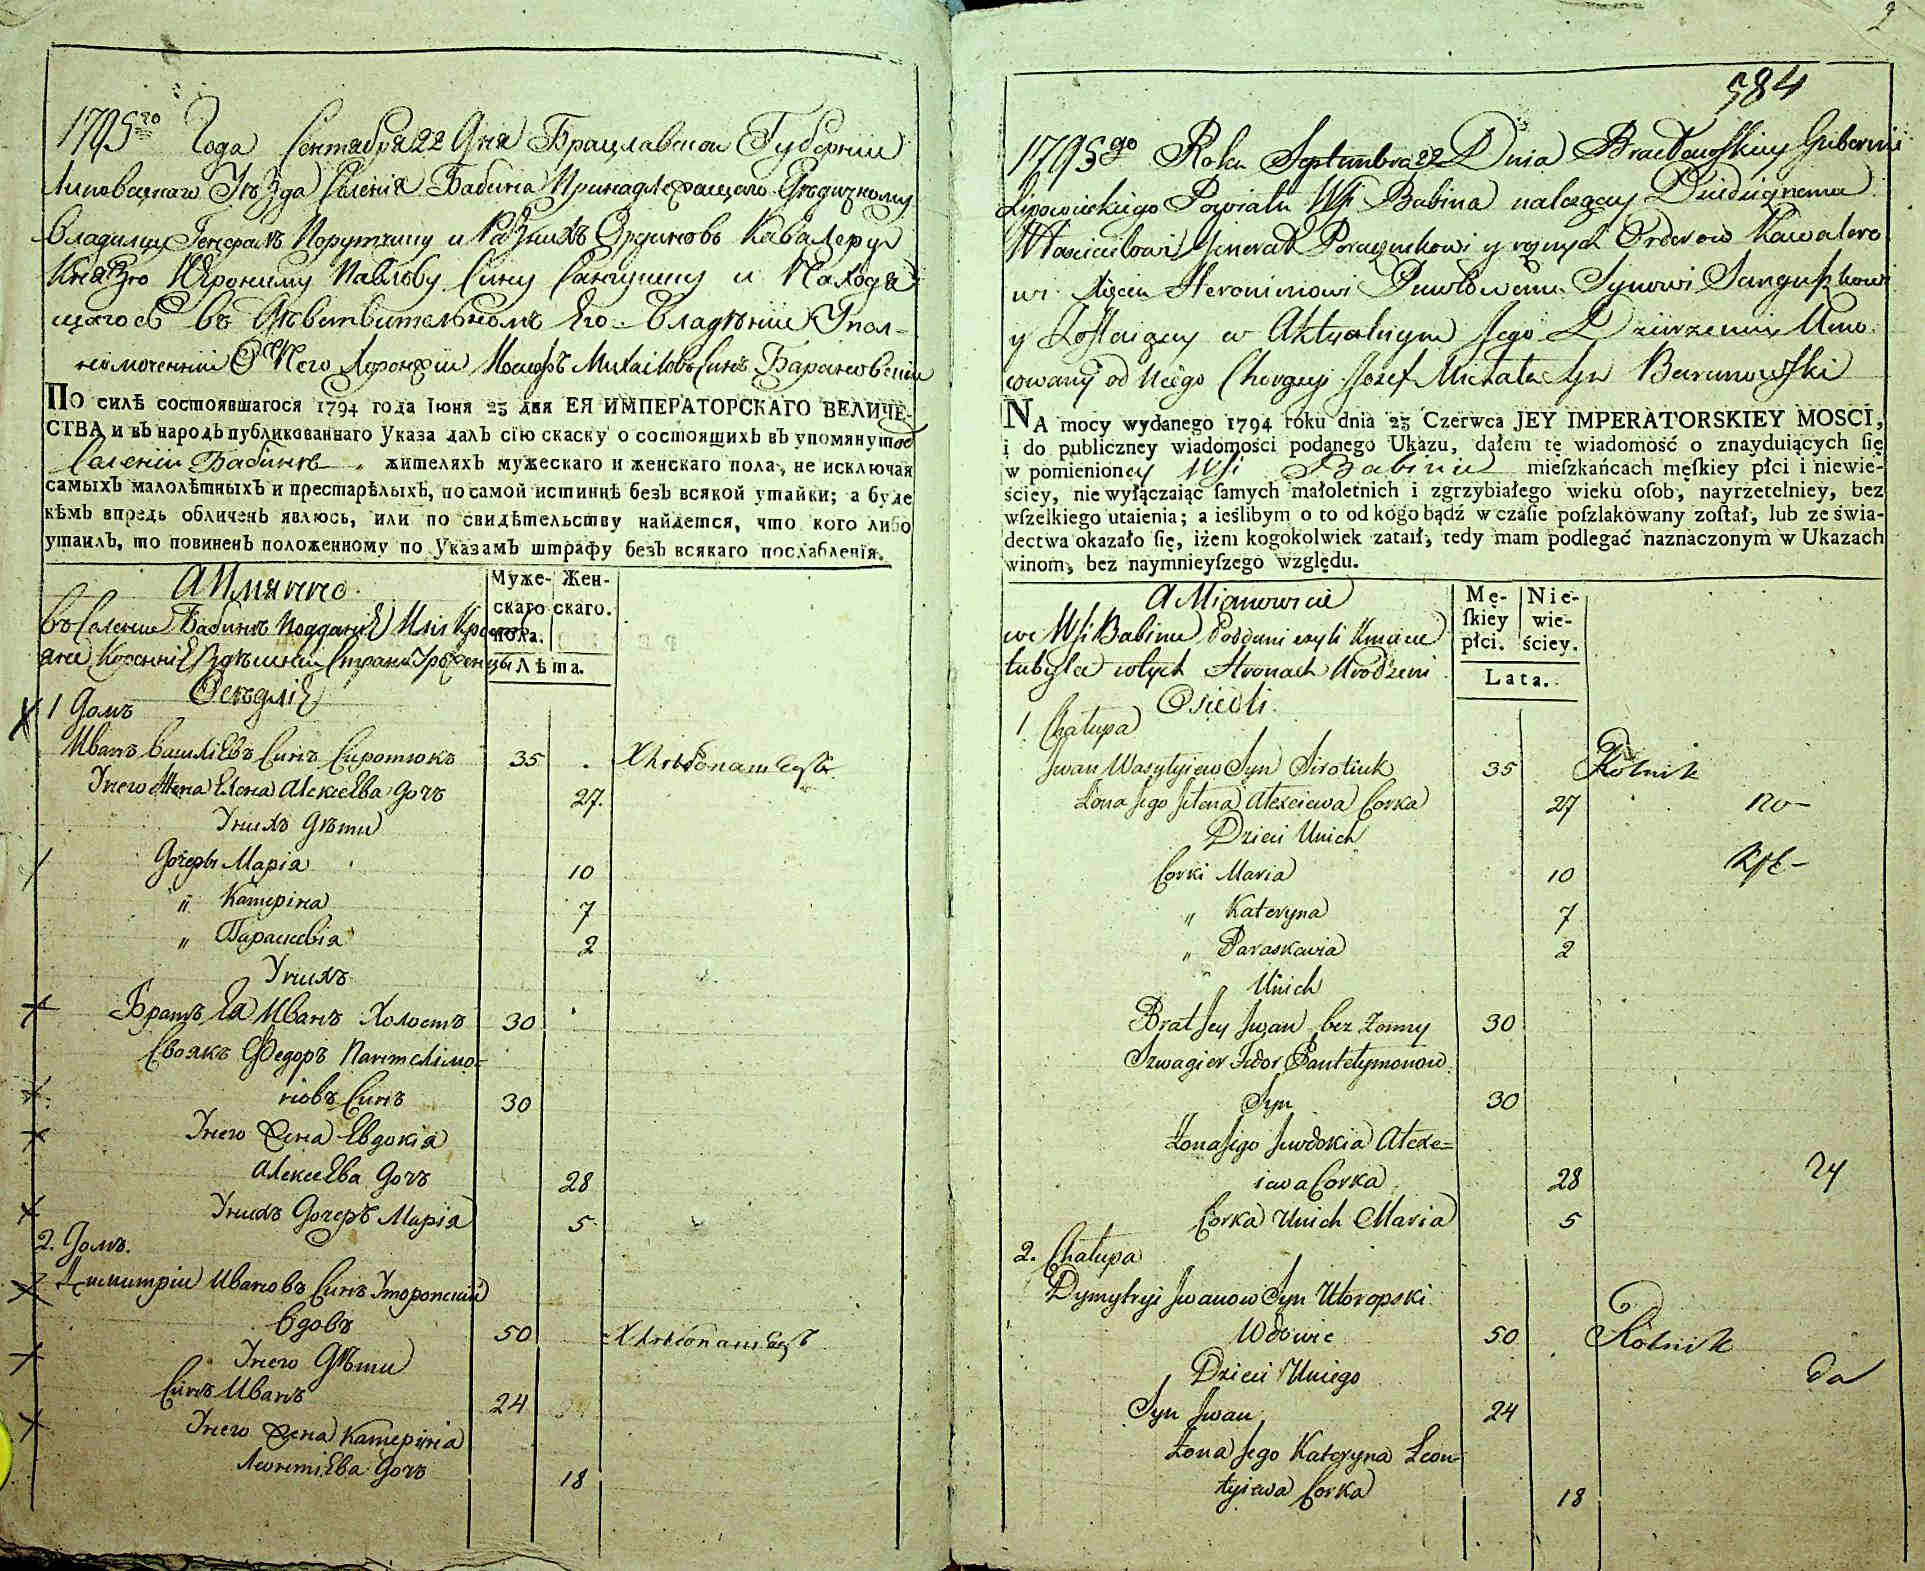 1795го Года Сентября 22 Дня Брацлавской Губернии
Липовецкаго Уѣзда Селенія Бабина Принадлежащаго Єѣдичному
Владѣлцу Генералъ Порутчику и Разныхъ Ординовъ Кавалеру
Князю Іерониму Павлову Сину Сангушку и Находя
щагось въ Дѣвствительномъ Его Владѣніи Упол-
номоченній О Него Хоронжій Иосифъ Михаіловъ Синъ Барановскій
ПО силѣ состоявшагося 1794 года Іюня 23 дня ЕЯ ИМПЕРАТОРСКАГО ВЕЛИЧЕ-
СТВА и въ народъ публикованнаго Указа далъ сію скаску о состоящихъ въ упомянутое
Селеніи Бабинѣ жителяхъ мужескаго и женскаго пола, не исключая
самыхъ малолѣтныхъ и престарѣлыхъ, по самой истиннѣ безъ всякой утайки; а буде
кѣмъ впредь обличенъ явлюсь, или по свидѣтельству найдется, что кого либо
утаилъ, то повиненъ положенному по Указамъ штрафу безъ всякаго послабленія.
А Имянно
Муже- Жен-
скаго скаго.
пола.
Лѣта.
въ Селеніи Бабинѣ Подданіе Или Кресть
Осѣдліе
1 Домъ
Иванъ Василіевъ Синъ Сиротюкъ 35
У него Жена Елена Алексеева Дочъ 27.
У нихъ Дѣти
Дочеры Марія 10
" Катеріна 7
" Параскевія 2
У нихъ
Братъ Ея Иванъ Холостъ 30
Своякъ Федоръ Пантелімо-
новъ Синъ 30
У него Жена Евдокія
Алексеева Дочъ 28
У нихъ Дочеръ Марія 5
2. Домъ.
Димитріи Ивановъ Синъ Уторопскій
Вдовъ 50
У него Дѣти
Синъ Иванъ 24
У него Жена Катеріна
Леонтіева Дочъ 18
2
584
1795go Roku Septembra 22 Dnia Bracławskiey Gubernii
Lipowieckiego Powiatu Wsi Babina należącey Dziedzicznemu
Włascicielowi Jenerał Porucznikowi y roznych Orderow Kawalero
wi Xięciu Heronimowi Pawłowemu Synowi Sanguszkowi
y Zostaiącey w Aktualnym Jego Dzierzeniu Umo
cowany od Niego Chorąży Jozef Michała Syn Baranowski
NA mocy wydanego 1794 roku dnia 23 Czerwca JEY IMPERATORSKIEY MOSCI,
i do publiczney wiadomości podanego Ukazu, dałem tę wiadomość o znayduiących ſię
w pomienioney Wsi Babinie mieſzkańcach męſkiey płci i niewie-
ściey, nie wyłączaiąc ſamych małoletnich i zgrzybiałego wieku oſob, nayrzetelniey, bez
wſzelkiego utaienia; a ieślibym o to od kogo bądź w czaſie poſzlakowany zoſtał, lub ze świa-
dectwa okazało ſię, iżem kogokolwiek zataił, tedy mam podlegać naznaczonym w Ukazach
winom, bez naymnieyſzego względu.
A Mianowicie
Mę- Nie-
ſkiey wie-
płci. ściey.
Lata.
we Wsi Babinie Poddani czyli Kmiecie
tubyłca w tych Stronach Urodzeni
Osiedli.
1 Chałupa
Jwan Wasylyiew Syn Sirotiuk 35 Rolnik
Zona Jego Jelena Alexeiewa Corka 27 по-
Dzieci Unich
Corki Maria 10
" Kateryna 7
" Paraskawia 2
Unich
Brat Jey Jwan bez Zonny 30
Szwagier Fedor Pantelymonow
Syn 30
Zona Jego Jewdokia Alexe=
iewa Corka 28 24
Corka Unich Maria 5
2. Chałupa
Dymytryi Jwanow Syn Utoropski
Wdowiec 50 Rolnik
Dzieci Uniego да
Syn Jwan 24
Zona Jego Kateryna Leon-
tyiewa Corka 18